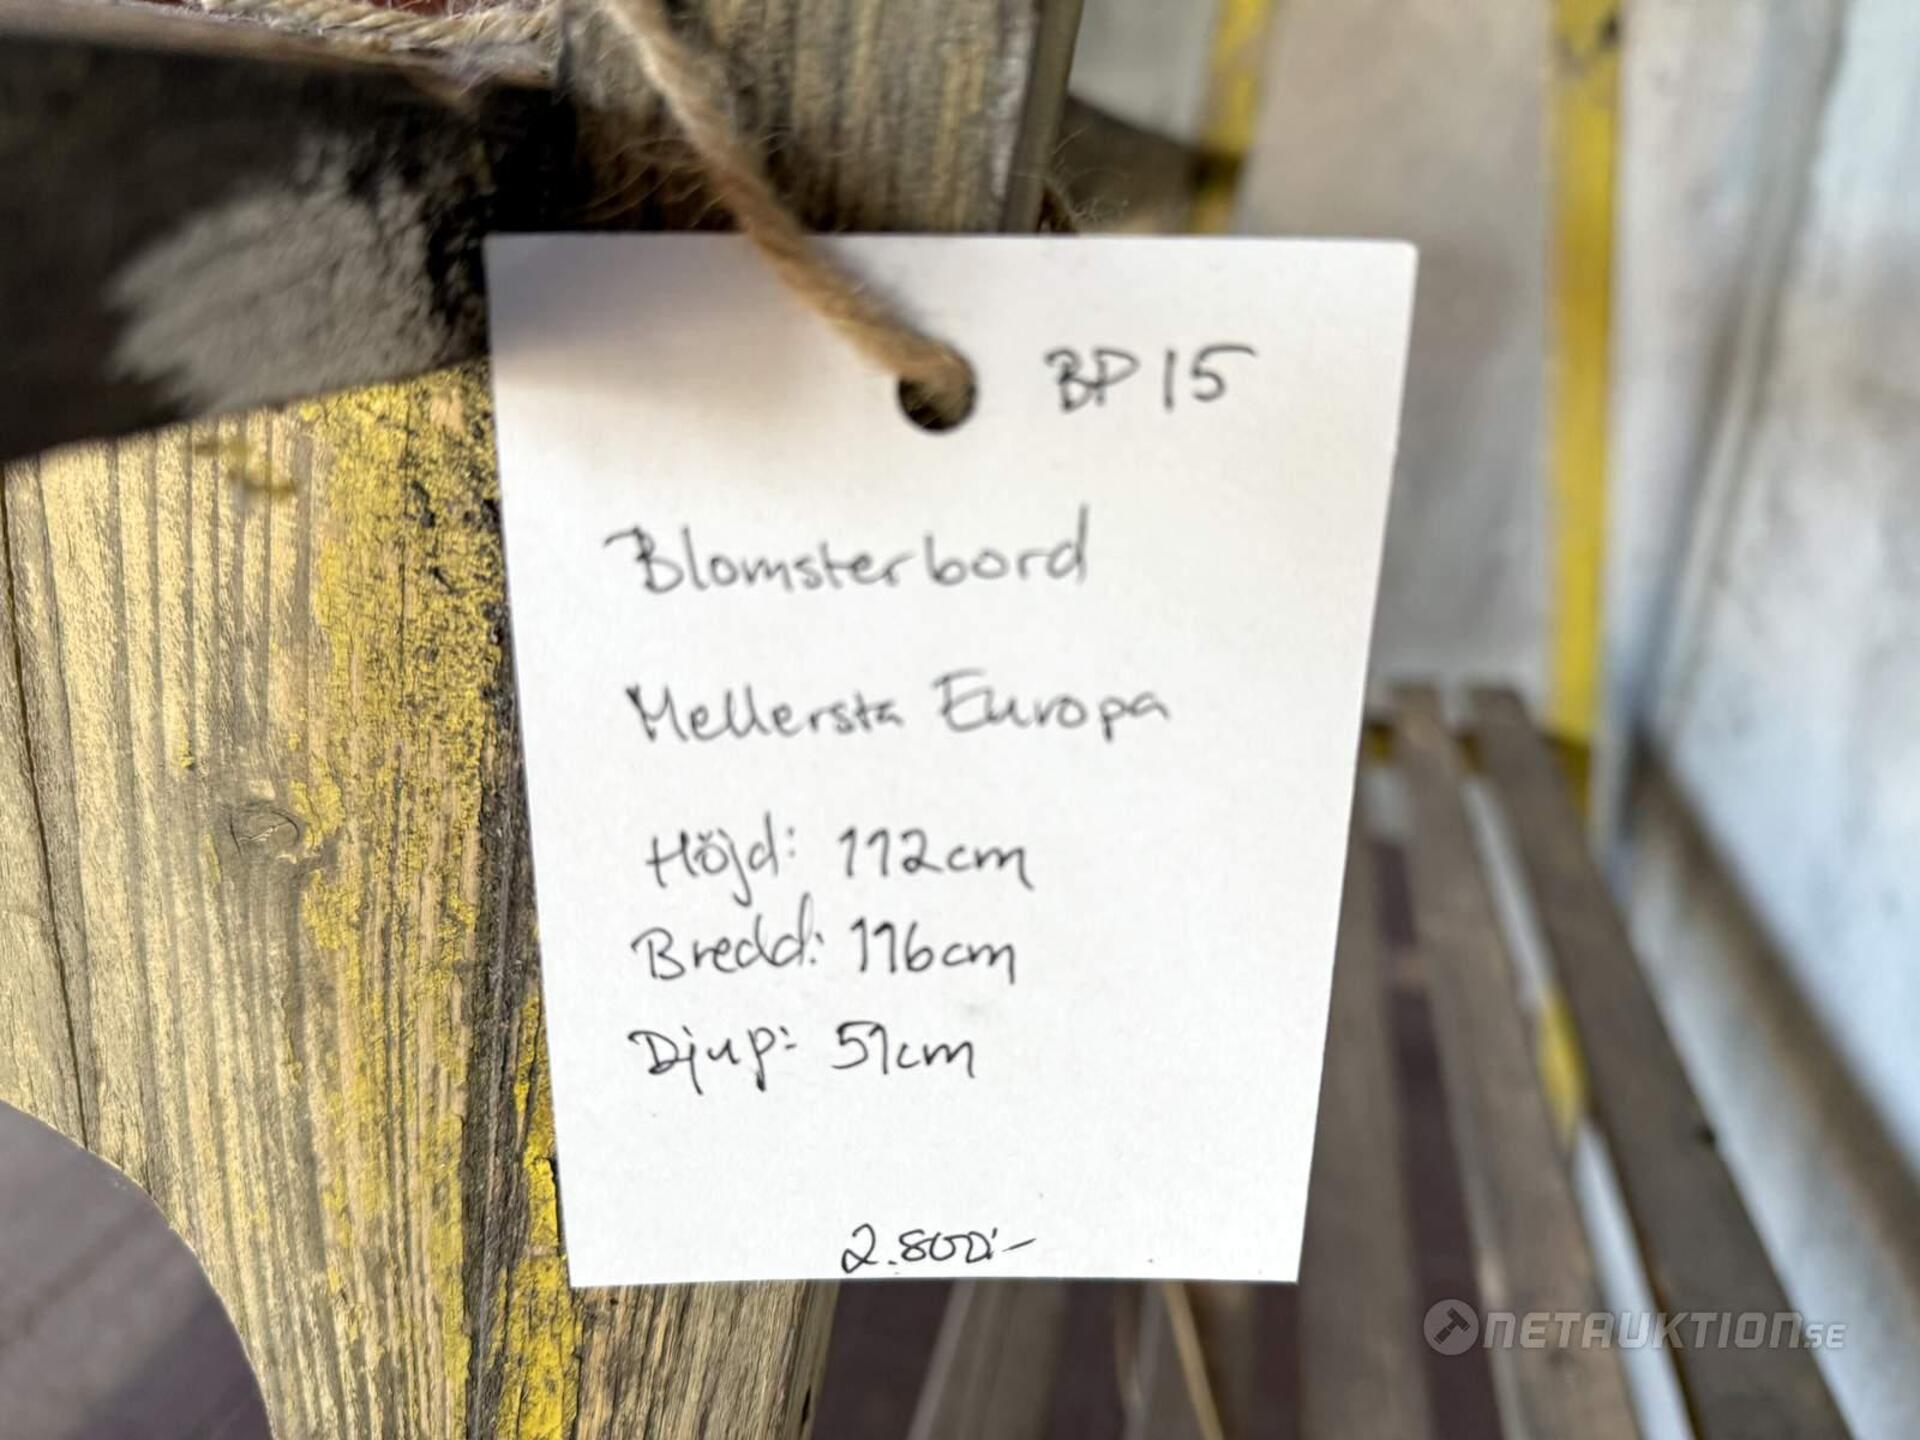 BP 15
Blomsterbord
Mellersta Europa
Höjd: 112cm
Bredd: 116cm
Djup: 51cm
2.800:-
NETAUKTION.SE